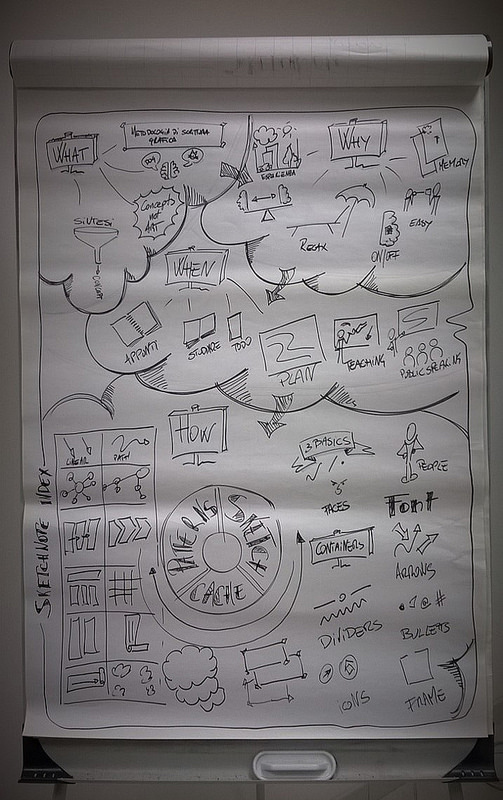 WHAT
METODOLOGIA DI SCRITTURA
GRAFICA
Concepts
not
ART
SINTESI
WHY
ESPERIENZA
MEMORY
RELAX
ON/OFF
EASY
WHEN
APPUNTI
STUDIARE
TODO
PLAN
TEACHING
PUBLIC SPEAKING
HOW
SKETCHNOTE INDEX
LINEAR
PATH
PATTERNS
SKETCH
CACHE
3 BASICS
PEOPLE
FACES
Font
CONTAINERS
ARROWS
DIVIDERS
BULLETS
ICONS
FRAME